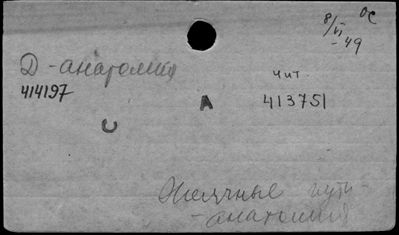 ОС
8/VI
-49
Д-анатомия
414197
чит.
413751
А
С
Желчные пути-
-анатомия